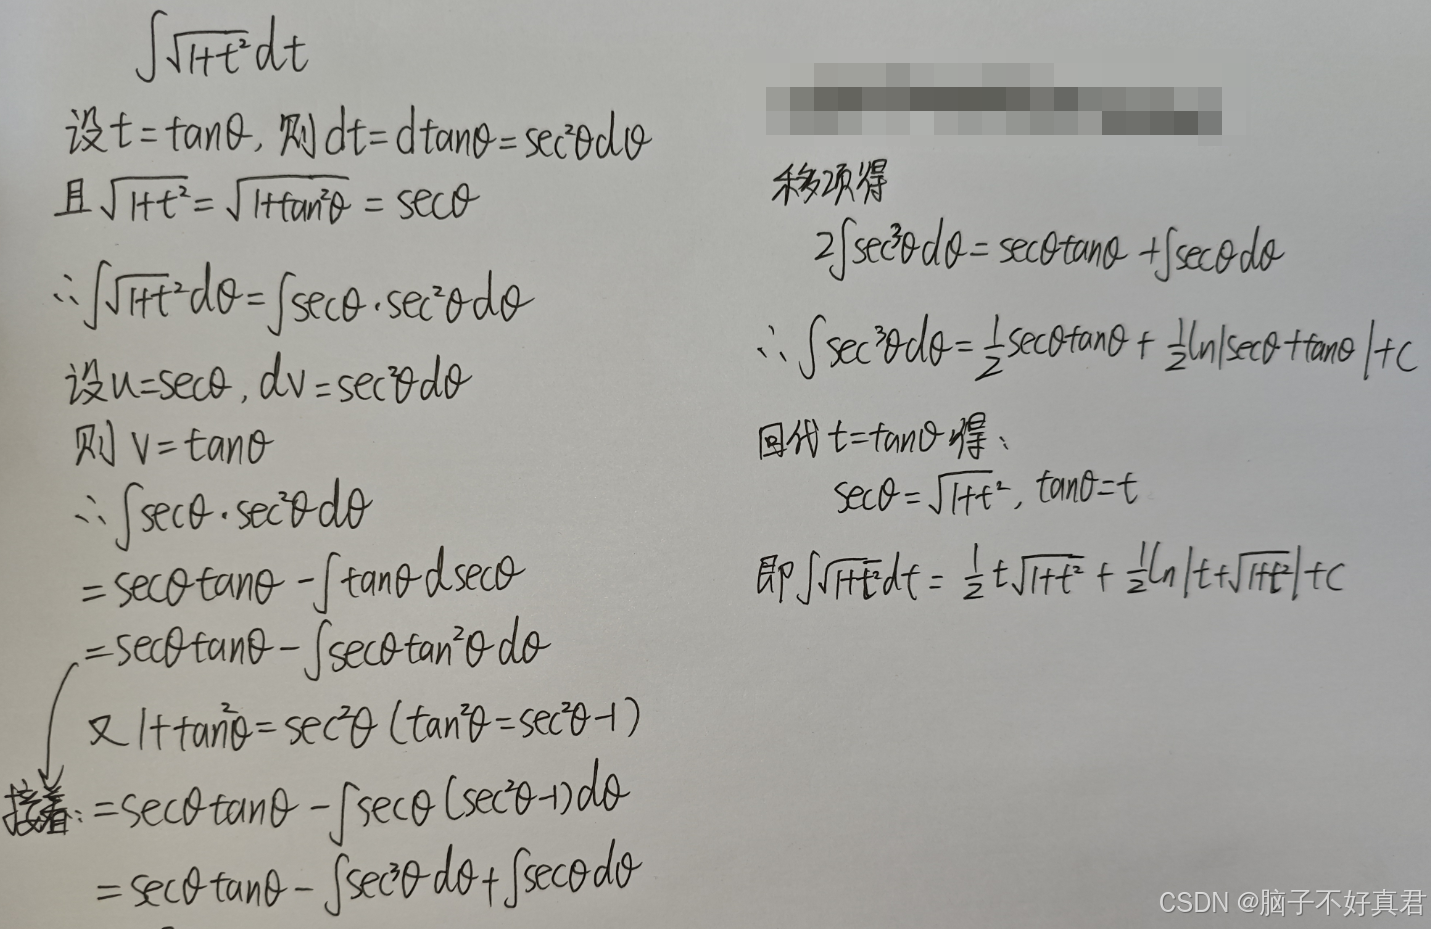 ∫√1+t² dt
设t=tanθ, 则dt=dtanθ=sec²θdθ
且√1+t² = √1+tan²θ = secθ
∴∫√1+t² dθ=∫secθ·sec²θdθ
设u=secθ, dv=sec²θdθ
则 v=tanθ
∴∫secθ·sec²θdθ
=secθtanθ-∫tanθdsecθ
=secθtanθ-∫secθtan²θdθ
又1+tan²θ=sec²θ(tan²θ=sec²θ-1)
接着: =secθtanθ-∫secθ(sec²θ-1)dθ
=secθtanθ-∫sec³θdθ+∫secθdθ
移项得
2∫sec³θdθ=secθtanθ+∫secθdθ
∴∫sec³θdθ=½secθtanθ+½ln|secθ+tanθ|+C
回代t=tanθ得:
secθ=√1+t², tanθ=t
即∫√1+t² dt=½t√1+t²+½ln|t+√1+t²|+C
CSDN @脑子不好真君